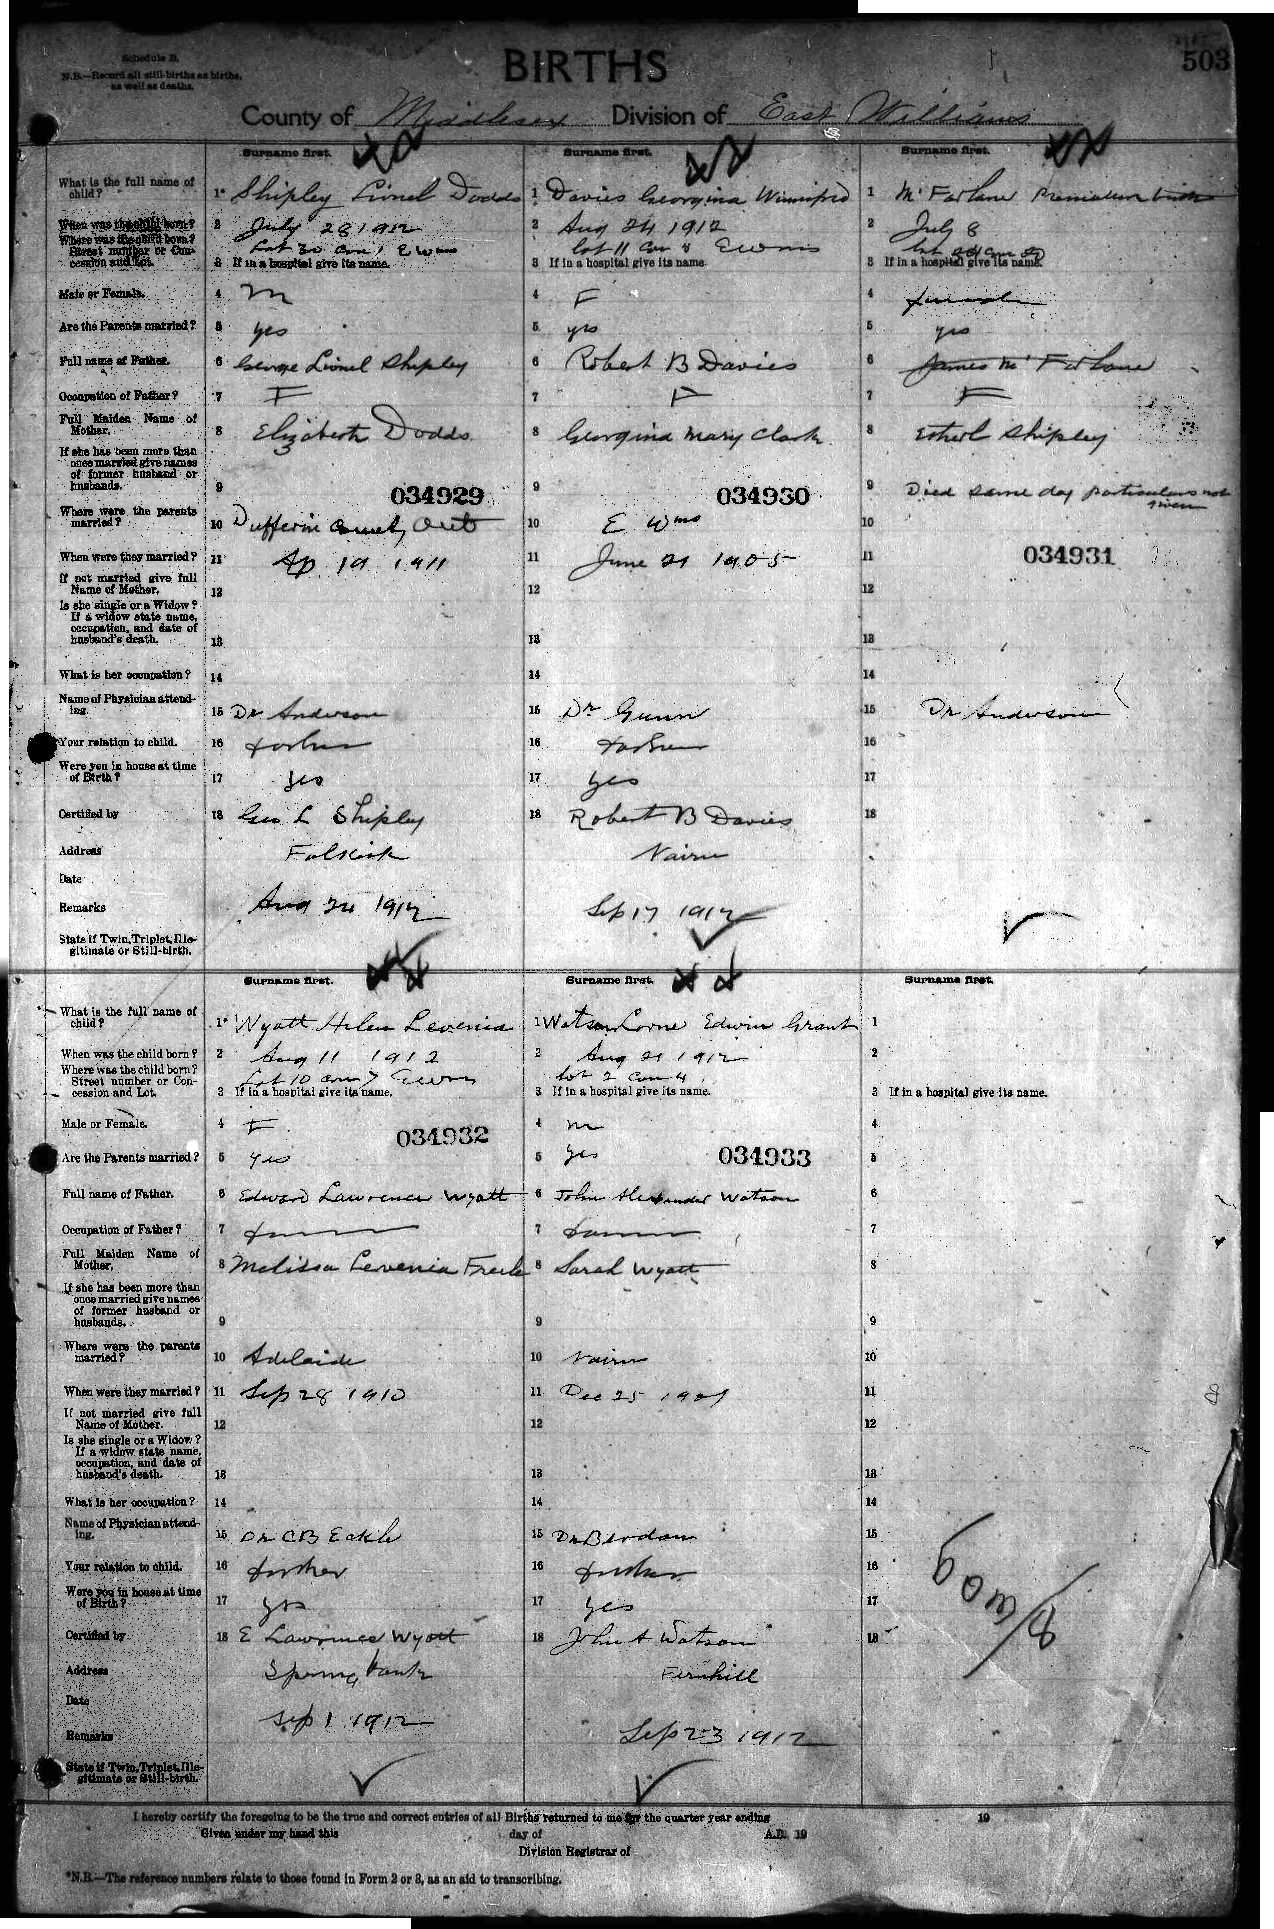 Schedule B.
N.B.—Record all still-births as births,
as well as deaths.
BIRTHS
503
County of Middlesex Division of East Williams
Surname first.
Surname first.
Surname first.
What is the full name of
child?
1* Shipley Lionel Dodds
1 Davies Georgina Winnifred
1 McFarlane Premature birth
When was the child born?
2 July 28 1912
2 Aug 24 1912
2 July 8
Where was the child born?
Street number or Con-
cession and Lot.
Lot 30 con 1 E Wms
Lot 11 con 8 E Wms
3 If in a hospital give its name.
3 If in a hospital give its name.
3 If in a hospital give its name.
Male or Female.
4 M
4 F
4
Are the Parents married?
5 yes
5 yes
5 yes
Full name of Father.
6 George Lionel Shipley
6 Robert B Davies
6 James McFarlane
Occupation of Father?
7 F
7 F
7 F
Full Maiden Name of
Mother.
8 Elizabeth Dodds
8 Georgina Mary Clark
8 Esther L Shipley
If she has been more than
once married give names
of former husband or
husbands.
9
9
9 Died same day particulars not
given
034929
034930
Where were the parents
married?
10 Dufferin County Ont
10 E Wms
10
When were they married?
11 Ap 19 1911
11 June 21 1905
11
034931
If not married give full
Name of Mother.
12
12
12
Is she single or a Widow?
If a widow state name,
occupation, and date of
husband's death.
13
13
13
What is her occupation?
14
14
14
Name of Physician attend-
ing.
15 Dr Anderson
15 Dr Gunn
15 Dr Anderson
Your relation to child.
16 father
16 father
16
Were you in house at time
of Birth?
17 yes
17 yes
17
Certified by
18 Geo L Shipley
18 Robert B Davies
18
Address
Falkirk
Nairn
Date
Remarks
Aug 24 1912
Sep 17 1912
State if Twin, Triplet, Ille-
gitimate or Still-birth.
Surname first.
Surname first.
Surname first.
What is the full name of
child?
1* Wyatt Helen Levenia
1 Watson Lorne Edwin Grant
1
When was the child born?
2 Aug 11 1912
2 Aug 21 1912
2
Where was the child born?
Street number or Con-
cession and Lot.
Lot 10 con 7 E Wms
Lot 2 con 4
3 If in a hospital give its name.
3 If in a hospital give its name.
3 If in a hospital give its name.
Male or Female.
4 F
4 m
4
034932
Are the Parents married?
5 yes
5 yes
5
034933
Full name of Father.
6 Edward Lawrence Wyatt
6 John Alexander Watson
6
Occupation of Father?
7 farmer
7 farmer
7
Full Maiden Name of
Mother.
8 Melissa Levenia Freele
8 Sarah Wyatt
8
If she has been more than
once married give names
of former husband or
husbands.
9
9
9
Where were the parents
married?
10 Adelaide
10 Nairn
10
When were they married?
11 Sep 28 1910
11 Dec 25 1901
11
If not married give full
Name of Mother.
12
12
12
Is she single or a Widow?
If a widow state name,
occupation, and date of
husband's death.
13
13
13
What is her occupation?
14
14
14
Name of Physician attend-
ing.
15 Dr C B Eakle
15 Dr Berdan
15
Your relation to child.
16 father
16 father
16
Were you in house at time
of Birth?
17 yes
17 yes
17
Certified by
18 E Lawrence Wyatt
18 John A Watson
18
Address
Springbank
Fernhill
Date
Sep 1 1912
Remarks
Sep 23 1912
State if Twin, Triplet, Ille-
gitimate or Still-birth.
I hereby certify the foregoing to be the true and correct entries of all Births returned to me for the quarter year ending 19
Given under my hand this day of A.D. 19
Division Registrar of
*N.B.—The reference numbers relate to those found in Form 2 or 3, as an aid to transcribing.